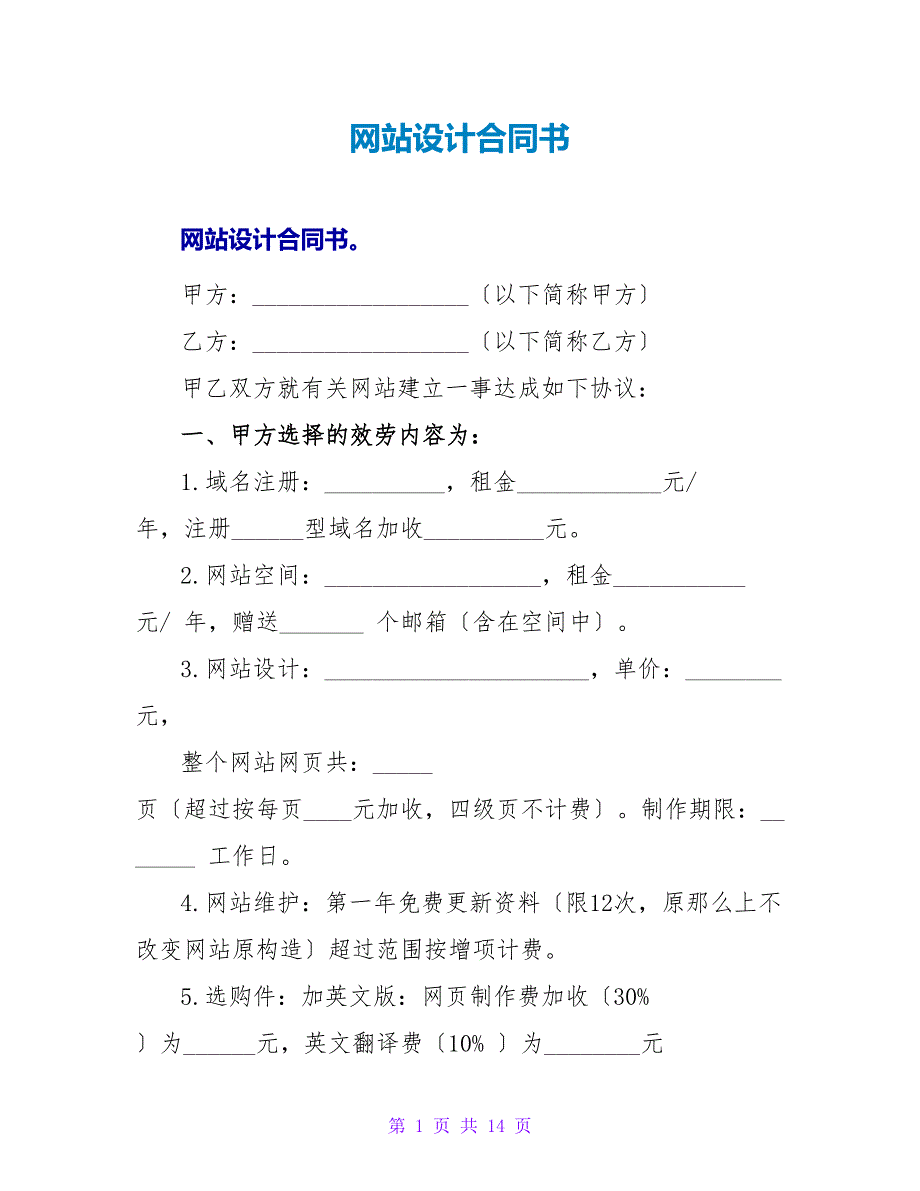 网站设计合同书
网站设计合同书。
甲方：__________________〔以下简称甲方〕
乙方：__________________〔以下简称乙方〕
甲乙双方就有关网站建立一事达成如下协议：
一、甲方选择的效劳内容为：
1.域名注册：__________，租金____________元/
年，注册______型域名加收__________元。
2.网站空间：__________________，租金___________
元/ 年，赠送_______ 个邮箱〔含在空间中〕。
3.网站设计：______________________，单价：________
元，
整个网站网页共：_____
页〔超过按每页____元加收，四级页不计费〕。制作期限：__
_____ 工作日。
4.网站维护：第一年免费更新资料〔限12次，原那么上不
改变网站原构造〕超过范围按增项计费。
5.选购件：加英文版：网页制作费加收〔30%
〕为______元，英文翻译费〔10% 〕为________元
第 1 页 共 14 页